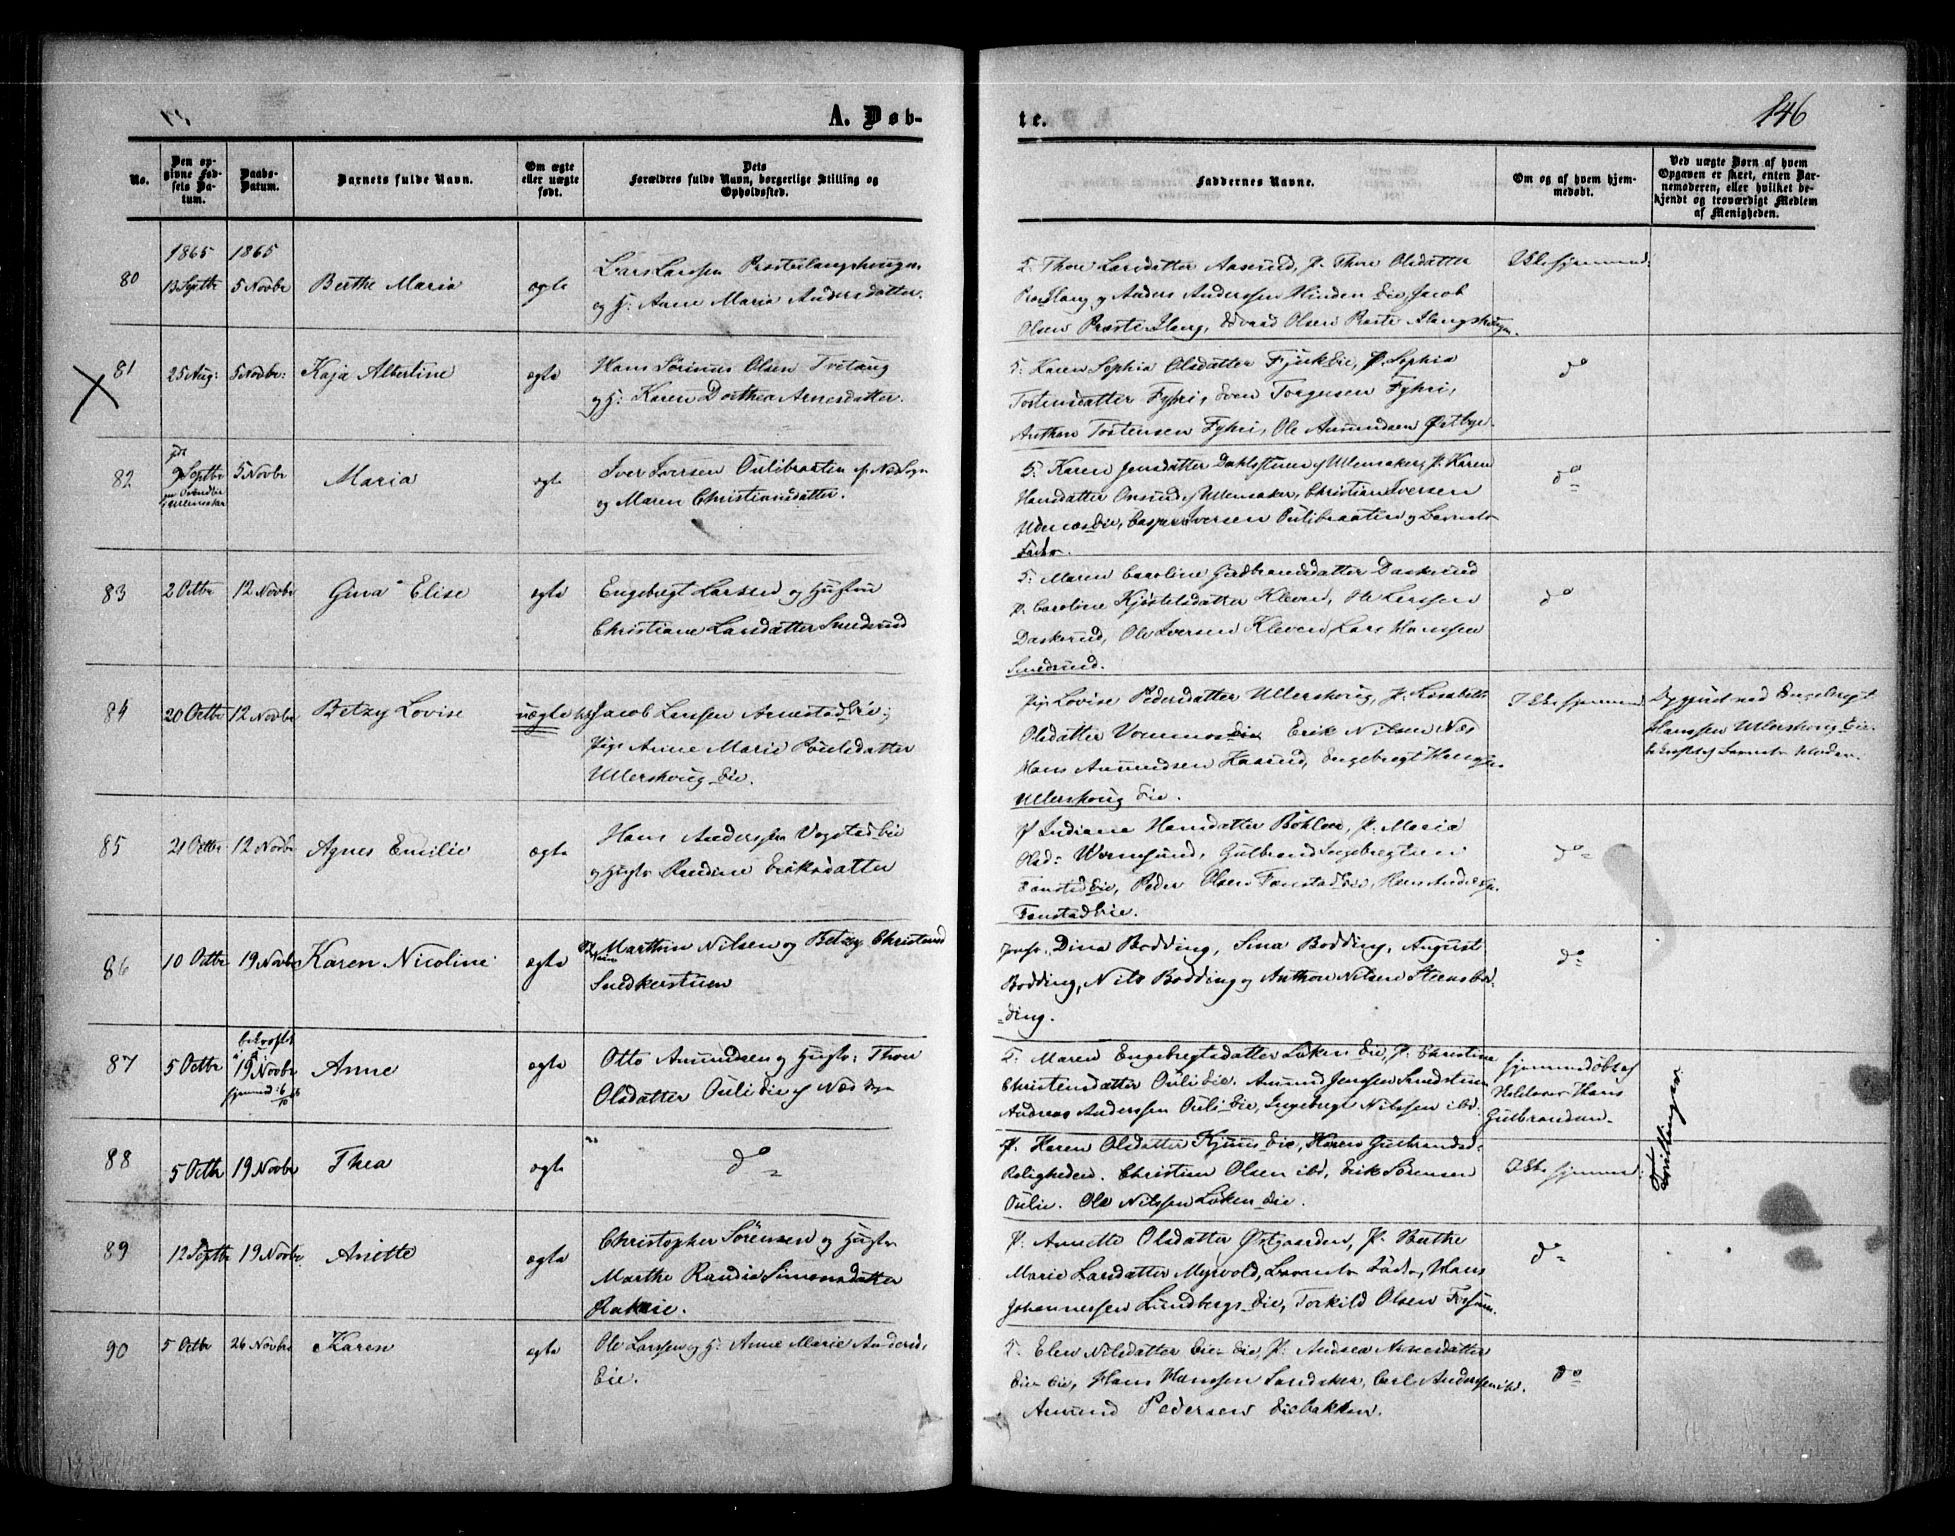 A. Døb-
te.
146
No.
Den opgivne Fødsels Datum.
Daabs-Datum.
Barnets fulde Navn.
Om ægte eller uægte født.
Dets Forældres fulde Navn, borgerlige Stilling og Opholdssted.
Faddernes Navne.
Om og af hvem hjemmedøbt.
Ved uægte Børn af hvem Opgaven er skeet, enten Barnemoderen, eller hvilket bekjendt og troværdigt Medlem af Menigheden.
1865 1865
80 13 Septbr 5 Novbr Berthe Maria ægte Lars Larssen
og H: Anne Maria Andersdatter.
F: Thore Larsdatter Aaserud, P. Thore Olsdatter
og Anders Anderssen Hinden Eie, Jacob
Olsen Præste, Edvard Olsen
81 25 Aug: 5 Novbr: Kaja Albertine ægte Hans Sørinus Olsen Tveitang
og H: Karen Dorthea Arnesdatter.
F: Karen Sophia Olsdatter Eie, P. Sophia
Tostensdatter Fyhri, Sven Torgusen Fyhri,
Anthon Tostensen Fyhri, Ole Amundsen Østbye
do
82 9 Septbr 5 Novbr Maria ægte Iver Iversen Oulibraaten af Næs Sogn
og Maren Christiansdatter.
F: Karen Jensdatter Dahlstuen af Ullensaker, P. Karen
Hansdatter Onsrud af Ullensaker, Christian Iversen
Udenæs Eie, Casper Iversen Oulibraaten og Barnets
Fader.
do
83 2 Octbr 12 Novbr Gina Elise ægte Engebregt Larsen og Hustru
Christiane Larsdatter Smedsrud
F: Maren Caroline Gudbrandsdatter Daskerud
P. Caroline Kjøstelsdatter Kleven, Ole Larssen
Daskerud, Ole Iversen Kleven, Lars Hanssen
Smedsrud.
do
84 20 Octbr 12 Novbr Betzy Lovise uægte Jacob Larssen Arnestad Eie;
Pige Anne Marie Poulsdatter
Ullershoug Eie.
Pige Lovise Pedersdatter Ullershoug, P.
Olsdatter Vormnes Eie Erik Nilsen Næs
Hans Amundsen Haserud, Engebregt Hanssen
Ullershoug Eie.
Ikke hjemmed
Opgivet ved Engebregt
Hanssen Ullershoug Eie
85 21 Octbr 12 Novbr Agnes Emilie ægte Hans Anderssen Vogstad Eie
og Hustr Randine Eriksdatter
P Indiana Hansdatter Bøhler, P. Maria
Olsd: Wormsund, Gulbrand Ingebregtsen
Fonstad Eie, Peder Olsen Fonstad Eie, Hans Anderssen
Fonstad Eie.
do
86 10 Octbr 19 Novbr Karen Nicoline ægte Marthin Nilsen og Betzy Christensd
Snedkerstuen
Dina Bodding, Sina Bodding, August
Bodding, Nils Bodding og Anthon Nilsen Steensbod-
ding.
do
87 5 Octbr bekræftet 19 Novbr Anne ægte Otto Amundsen og Hustr: Thore
Olsdatter Ouli Eie af Næs Sogn
F: Maren Engebregtsdatter Løken Eie, P. Christine
Christensdatter Ouli Eie. Amund Jenssen Smedstuen
Andreas Anderssen Ouli Eie, Ingebregt Nilssen ibd.
hjemmedøbt af
Hans
Gulbrandsen.
Tvillinger.
88 5 Octbr 19 Novbr Thea ægte do
P. Karen Olsdatter Eie, Karen Gulbrandsd:
Roligheden. Christian Olsen ibd, Erik Sørensen
Oulie. Ole Nilssen Løken Eie.
Ikke hjemmed:
89 12 Septbr 19 Novbr Anette ægte Christopher Sørensen og Hustr
Marthe Randia Simensdatter
Rakeie.
P. Annette Olsdatter Østgaarden, P. Berthe
Marie Larsdatter Myrvold, Barnets Fader, Hans
Johannessen Lundbergs Eie, Torkild Olsen
do
90 5 Octbr 26 Novbr Karen ægte Ole Larssen og H: Anne Marie Andersd.
Eie.
F. Elen Nilsdatter Eie Eie, P. Andrea Arnesdatter
Eie Eie, Hans Hanssen Sandaker, Carl Anderssen ibd.
Amund Pedersen Eiebakken.
do